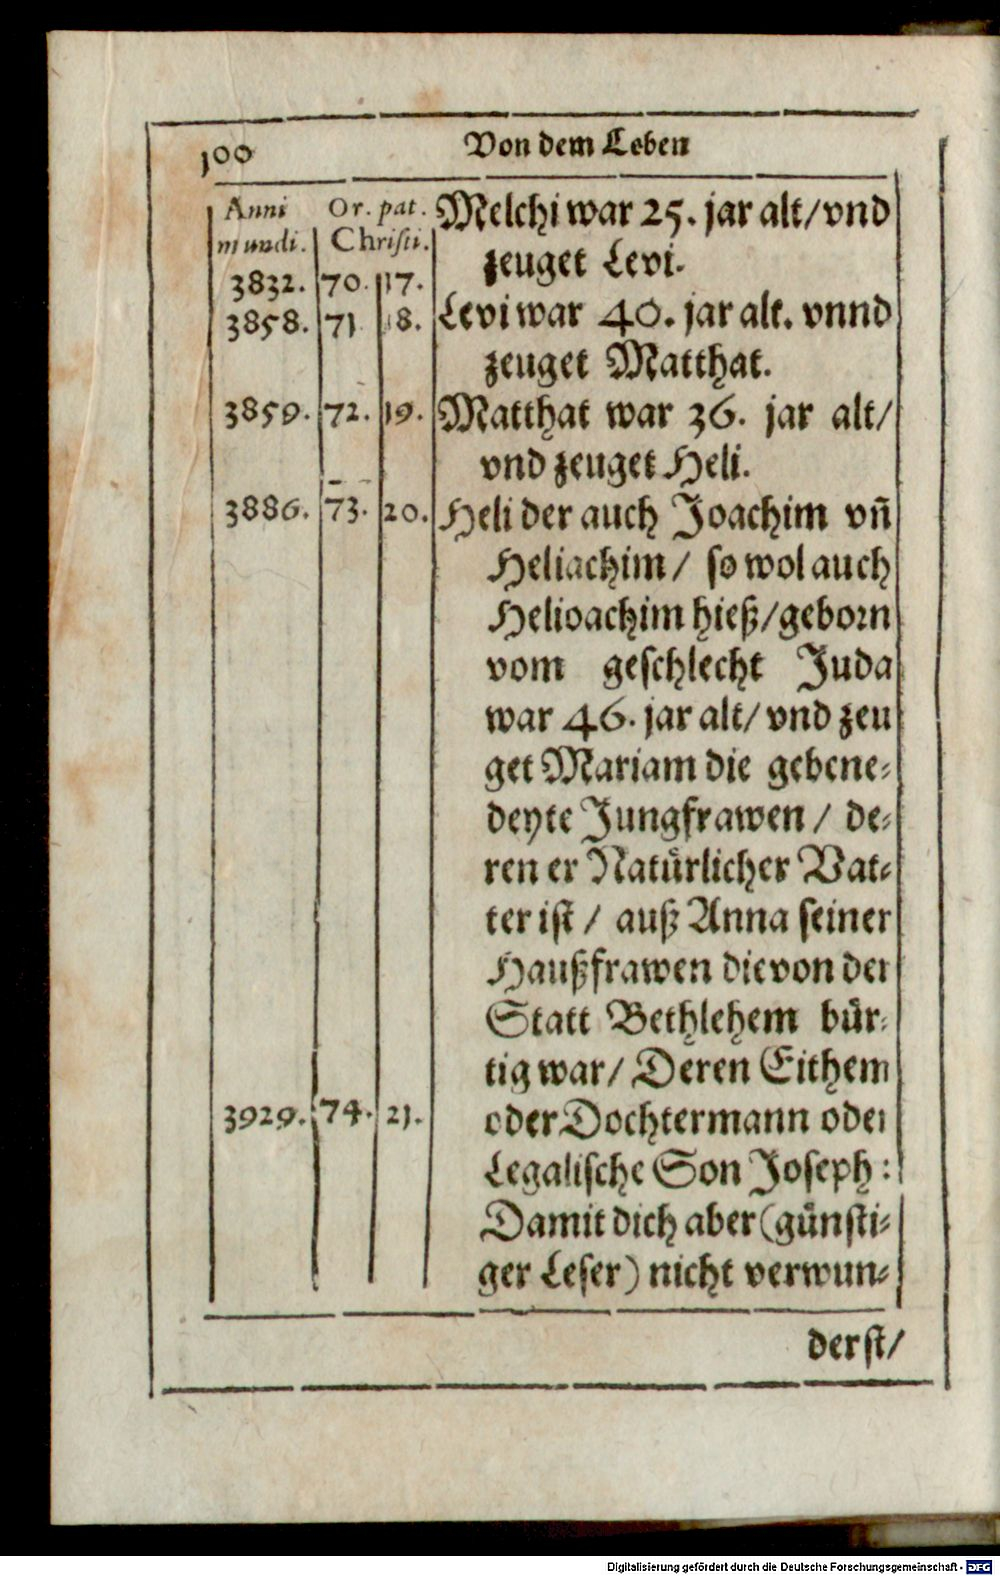 100 Von dem Leben
Anni Or. pat. Melchi war 25. jar alt/vnd
mundi. Christi.
zeuget Levi.
3832. 70. 17.
3858. 71 18. Levi war 40. jar alt. vnnd
zeuget Matthat.
3859. 72. 19. Matthat war 36. jar alt/
vnd zeuget Heli.
3886. 73. 20. Heli der auch Joachim vñ
Heliachim/ so wol auch
Helioachim hieß/geborn
vom geschlecht Juda
war 46. jar alt/ vnd zeu
get Mariam die gebene-
deyte Jungfrawen / de-
ren er Natürlicher Vat-
ter ist / auß Anna seiner
Haußfrawen die von der
Statt Bethlehem bür-
tig war/ Deren Eithem
3929. 74. 21. oder Dochtermann oder
Legalische Son Joseph:
Damit dich aber (günsti-
ger Leser) nicht verwun-
derst/
Digitalisierung gefördert durch die Deutsche Forschungsgemeinschaft - DFG